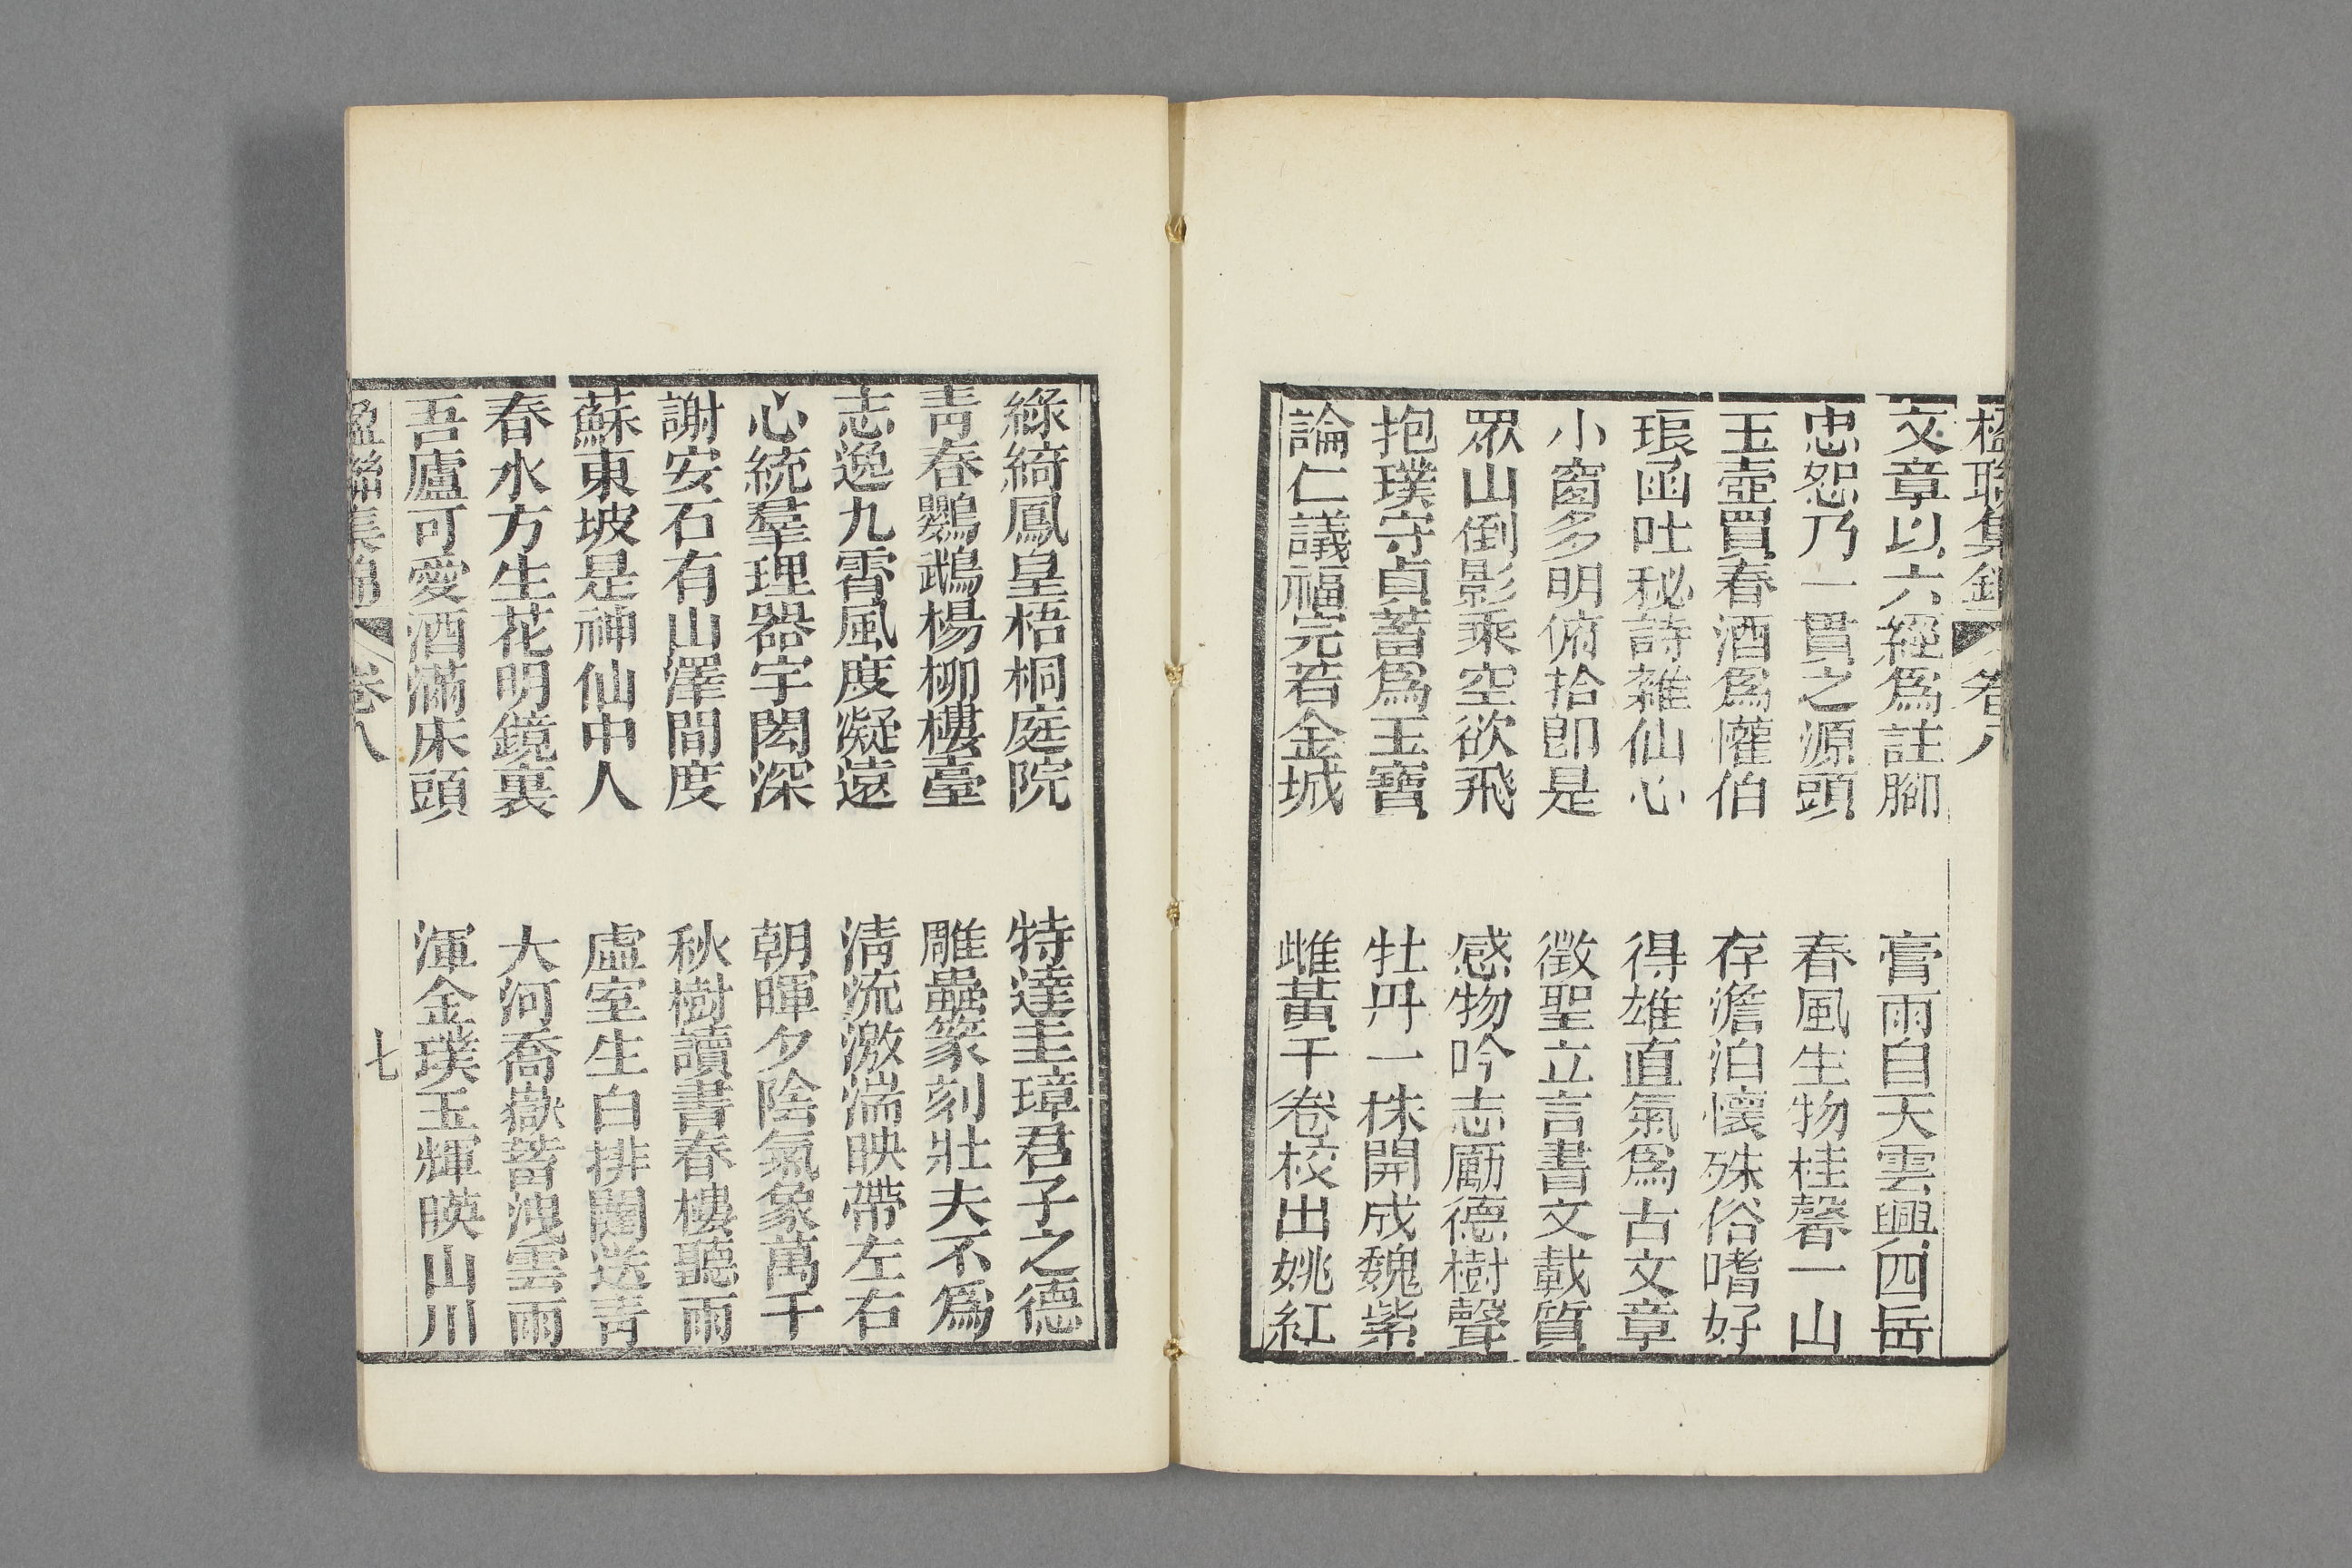 楹聯集錦 卷八
文章以六經爲註腳 膏雨自天雲興四岳
忠恕乃一貫之源頭 春風生物桂馨一山
玉壺買春酒爲懽伯 存澹泊懷殊俗嗜好
琅函吐秘詩雜仙心 得雄直氣爲古文章
小窗多明俯拾卽是 徵聖立言書文載質
眾山倒影乘空欲飛 感物吟志勵德樹聲
抱璞守貞蓄爲玉寶 牡丹一株開成魏紫
論仁議福完若金城 雌黃千卷校出姚紅
綠綺鳳皇梧桐庭院 特達圭璋君子之德
靑春鸚鵡楊柳樓臺 雕蟲篆刻壯夫不爲
志逸九霄風度凝遠 淸流激湍映帶左右
心統羣理器宇閎深 朝暉夕陰氣象萬千
謝安石有山澤間度 秋樹讀書春樓聽雨
蘇東坡是神仙中人 虛室生白排闥送靑
春水方生花明鏡裏 大河喬嶽蓄洩雲雨
吾廬可愛酒滿床頭 渾金璞玉輝暎山川
楹聯集錦 卷八 七